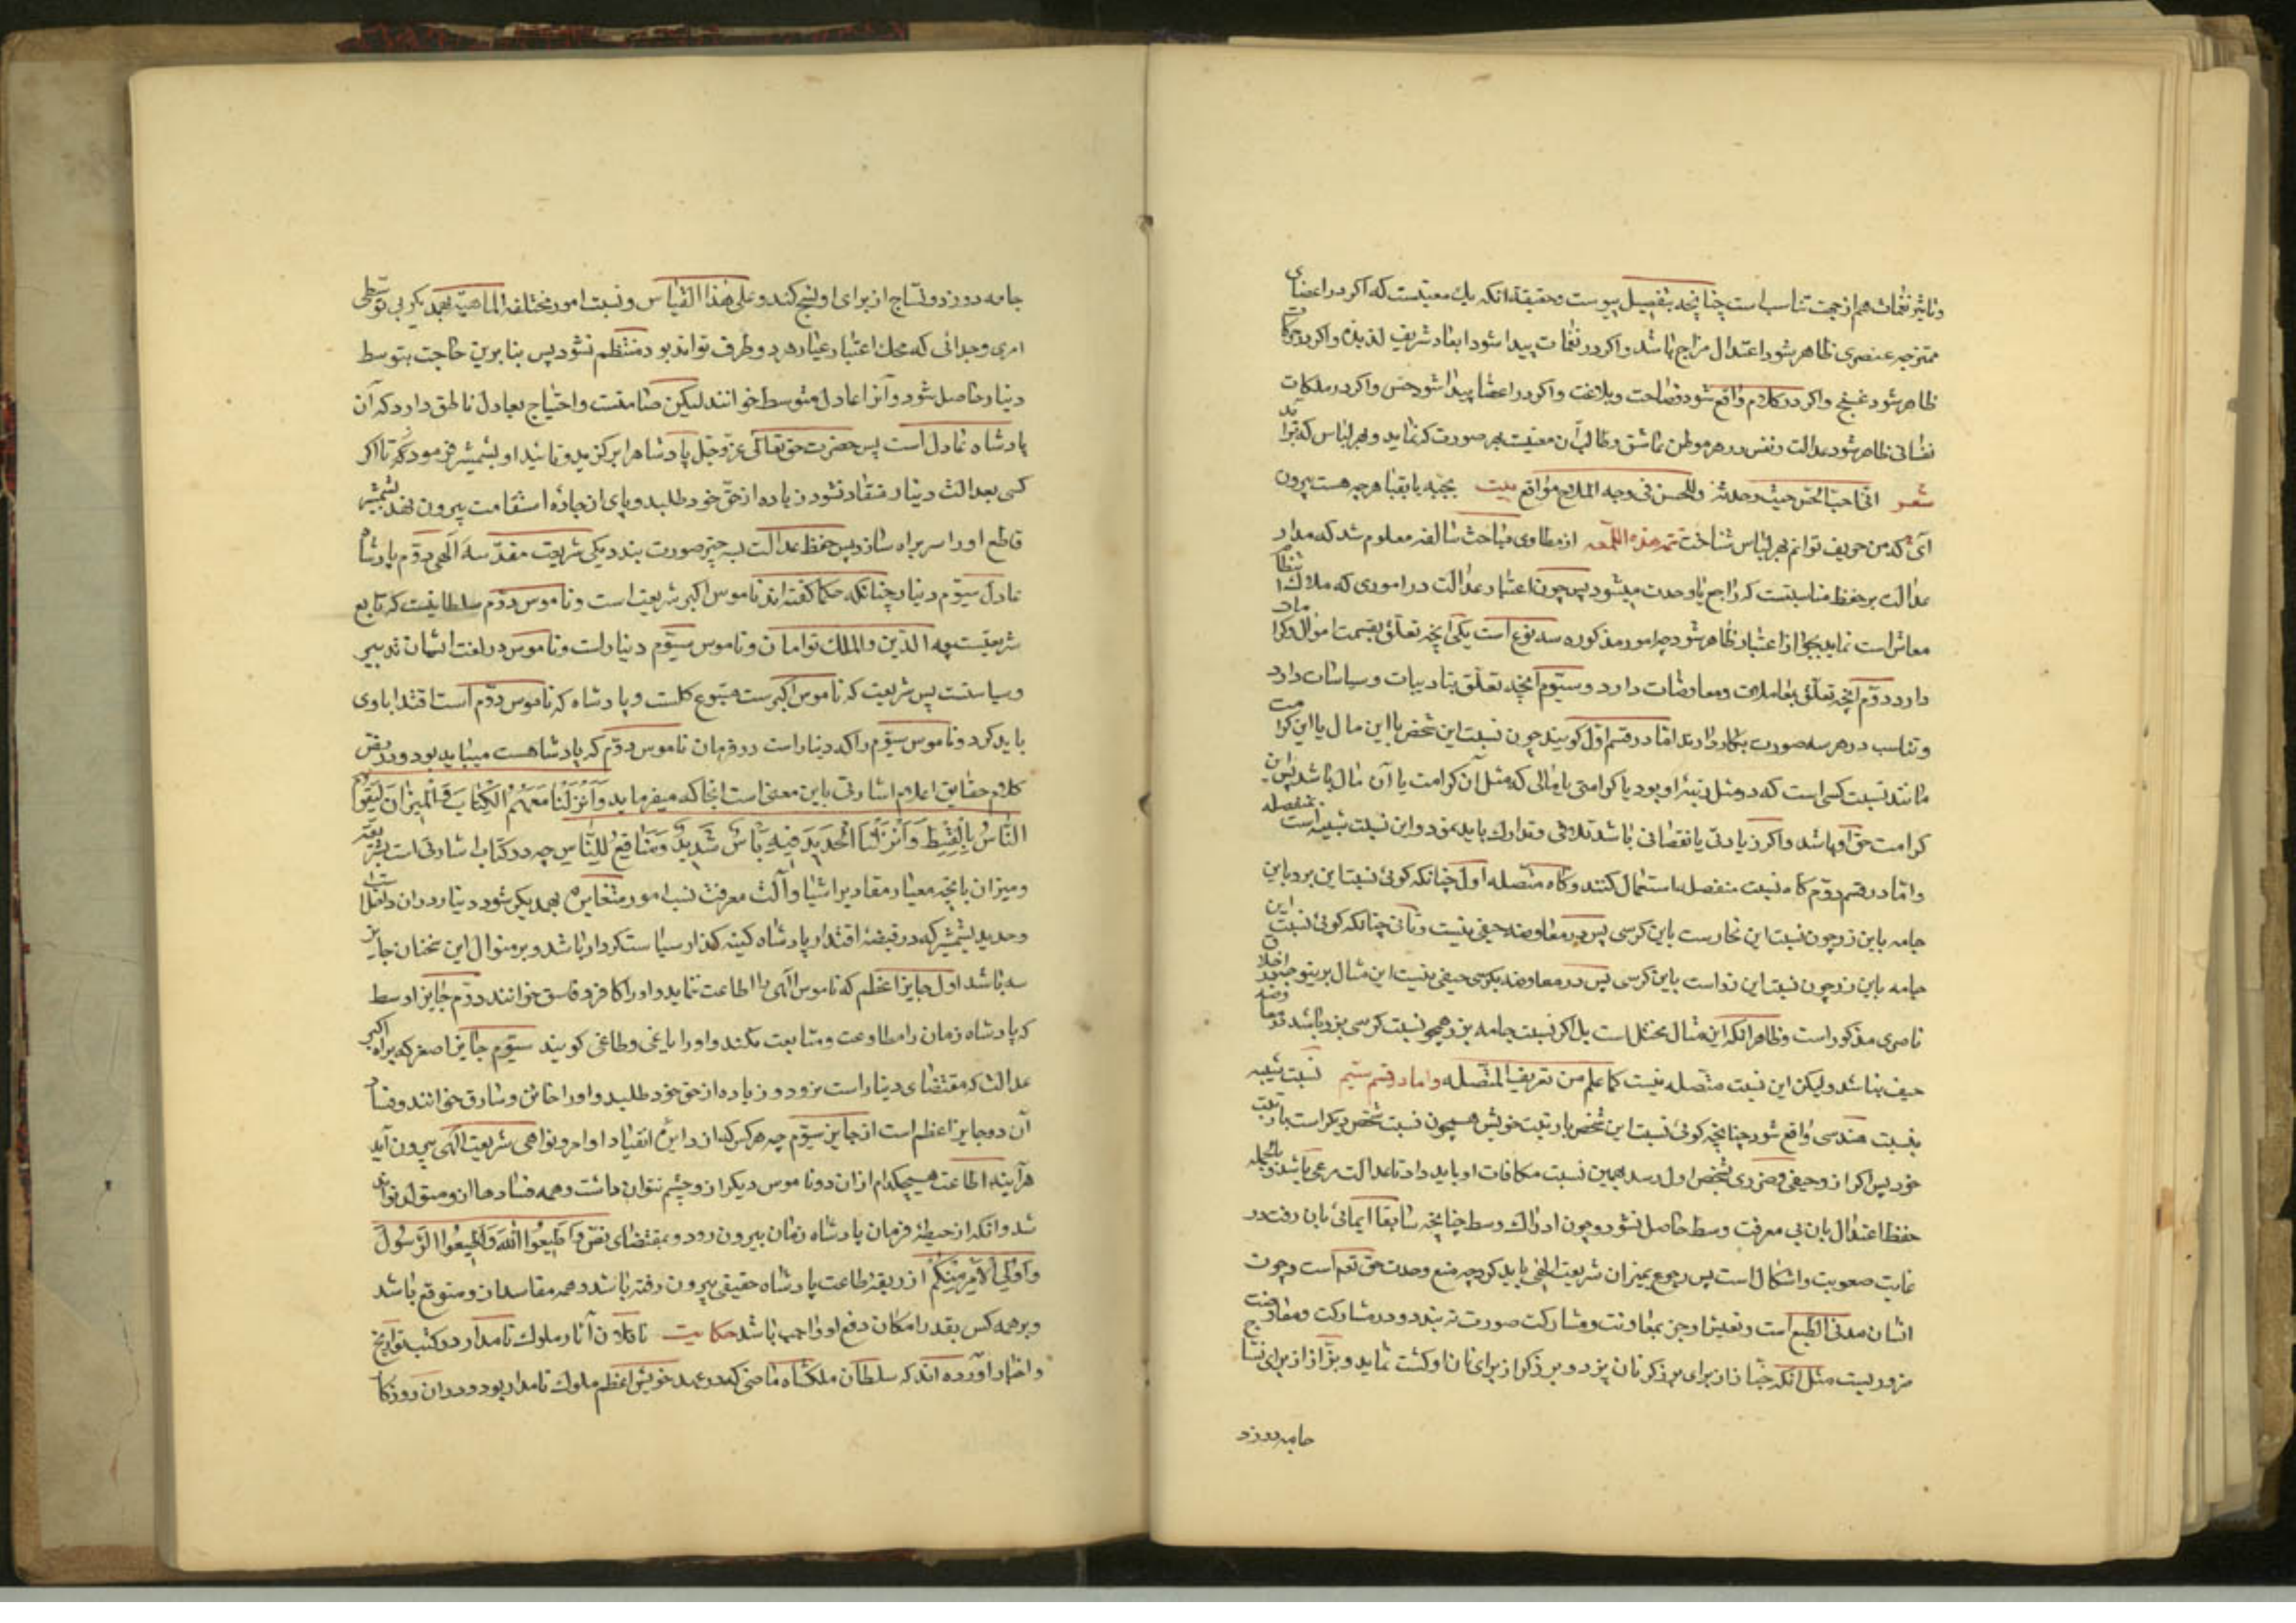 وتاثیر نغمات هم از جهت تناسب است چنانچه بتفصیل پیوست وحقیقة انکه یك معنیست که اکر در اعضای
ممتزجه عنصری ظاهر شود اعتدال مزاج باشد واکر در نغمات پیدا شود ابعاد شریف لذیذه واکر در حرکات
ظاهر شود غنج واکر در کلام واقع شود فصاحت وبلاغت واکر در اعضا پیدا شود حسن واکر در ملکات
نفسانی ظاهر شود عدالت ونفس در هر موطن عاشق وطالب آن معنیست بهر صورت که نماید وبهر لباس که برآید
شعر انی احب الحسن حیث وجدته وللحسن فی وجه الملاح مواقع بیت بجبه یا بقبا هرچه هست بیرون
آی که من حریف توانم بهر لباس شناخت تمه هذه اللمعه از مطاوی مباحث سالفه معلوم شد که مدار
عدالت بر حفظ مناسبتست که راجع با وحدت میشود پس چون اعتبار عدالت در اموری که ملاك انتظام
معاش است نماید بحق از اعتبار ظاهر شود چه امور مذکوره سه نوع است یکی آنچه تعلق بقسمت اموال وکرامات
دارد دوم آنچه تعلق بمعاملات ومعاوضات دارد وسیوم آنچه تعلق بتادیبات وسیاسات دارد
وتناسب در هر سه صورت بکار دارند اما در قسم اول کویند چون نسبت این شخص با این مال یا این کرامت
مانند نسبت کسی است که در مثل رتبهٔ او بود با کرامتی یا مالی که مثل آن کرامت یا آن مال باشد پس این
کرامت حق او باشد واکر زیادتی یا نقصانی باشد تلافی وتدارك باید نمود واین نسبت شبیه است بمنفصله
واما در قسم دوم کاه نسبت منفصله استعمال کنند وکاه متصله اول چنانکه کوئی نسبت این بزاز باین
جامه باین زر چون نسبت این نجارست باین کرسی پس در معاوضه حیفی نیست وثانی چنانکه کوئی نسبت این
جامه باین زر چون نسبت این زر است باین کرسی پس در معاوضه بکرسی حیفی نیست این مثال برینوجه در اخلاق
ناصری مذکور است وظاهر انکه این مثال مختل است بل اکر نسبت جامه بزر همچو نسبت کرسی بزر باشد در معاوضه
حیف نباشد ولیکن این نسبت متصله نیست کما علم من تعریف المتصله واما در قسم سیم نسبت شبیه
بنسبت هندسی واقع شود چنانچه کوئی نسبت این شخص با رتبت خویش همچون نسبت شخص دیکر است با رتبت
خود پس اکر از وحیفی وضرری بشخص اول رسد بهمین نسبت مکافات او باید داد تا عدالت مرعی باشد وبالجمله
حفظ اعتدال بان بی معرفت وسط حاصل نشود وچون ادراك وسط چنانچه سابقا ایمائی بان رفت در
غایت صعوبت واشکال است پس رجوع بمیزان شریعت الهی باید کرد چه منبع وحدت حق تعم است وچون
انسان مدنی الطبع است وتعیش او جز بمعاونت ومشارکت صورت نه بندد ودر مشارکت ومعاوضت
ضروریست مثل انکه خباز از برای برزکر نان پزد وبرزکر از برای نان او کشت نماید وبزاز از برای نساج
جامه دوزد
جامه دوزد ونساج از برای او نسج کند وعلی هذا القیاس ونسبت امور مختلفة الماهیة بهمدیکر بی توسطی
امری وحدانی که محك اعتبار عیار هر دو طرف تواند بود منتظم نشود پس بنابرین حاجت بتوسط
دینار حاصل شود وآنرا عادل متوسط خوانند لیکن صامتست واحتیاج بعادل ناطق دارد که آن
پادشاه عادل است پس حضرت حق تعالی عز وجل پادشاه را برکزید وتائید او بشمشیر فرمود که تا اکر
کسی بعدالت دینار منقاد نشود زیاده از حق خود طلبد وپای از جادهٔ استقامت بیرون نهد بشمشیر
قاطع او را سربراه سازد پس حفظ عدالت بسه چیز صورت بندد یکی شریعت مقدسهٔ الهی دوم پادشاه
عادل سیوم دینار چنانکه حکما کفته‌اند ناموس اکبر شریعت است وناموس دوم سلطانیست که تابع
شریعتست چه الدین والملك توامان وناموس سیوم دینار است وناموس در لغت ایشان تدبیر
وسیاستست پس شریعت که ناموس اکبرست متبوع کلست وپادشاه که ناموس دوم است اقتدا باوی
باید کرد وناموس سیوم را که دینار است در فرمان ناموس دوم که پادشاهست میباید بود ودر نص
کلام حقایق اعلام اشارتی باین معنی است انجا که میفرماید وَاَنْزَلْنَا مَعَهُمُ الْکِتَابَ وَالْمِیزَانَ لِیَقُومَ
النَّاسُ بِالْقِسْطِ وَاَنْزَلْنَا الْحَدِیدَ فِیهِ بَأْسٌ شَدِیدٌ وَمَنَافِعُ لِلنَّاسِ چه در کتاب اشارتی است بشریعة
ومیزان بانچه معیار مقادیر اشیا وآلت معرفت نسب امور متغایره بهمدیکر شود دینار در ان داخل است
وحدید بشمشیر که در قبضهٔ اقتدار پادشاه کینه کذار سیاست کردار باشد وبر منوال این سخنان جایر
سه باشد اول جایر اعظم که ناموس الهی را اطاعت ننماید واو را کافر وفاسق خوانند دوم جایر اوسط
که پادشاه زمان را مطاوعت ومتابعت نکند واو را یاغی وطاغی کویند سیوم جایر اصغر که براه اکبر
عدالت که مقتضای دینار است نرود وزیاده از حق خود طلبد واو را خاین وسارق خوانند وفساد
آن دو جایر اعظم است از جایر سیوم چه هر کس که از دایرهٔ انقیاد اوامر ونواهی شریعت الهی بیرون آید
هرآینه اطاعت هیچکدام ازان دو ناموس دیکر ازو چشم نتوان داشت وهمه فسادها ازو متولد تواند
شد وانکه از حیطهٔ فرمان پادشاه زمان بیرون رود وبمقتضای نص وَاَطِیعُوا اللّٰهَ وَاَطِیعُوا الرَّسُولَ
وَاُولِی الْاَمْرِ مِنْکُمْ از ربقهٔ طاعت پادشاه حقیقی بیرون رفته باشد وهمه مفاسد از و متوقع باشد
وبر همه کس بقدر امکان دفع او واجب باشد حکایت ناقلان آثار ملوك نامدار در کتب تواریخ
واخبار آورده اند که سلطان ملکشاه ماضی که در عهد خویش اعظم ملوك نامدار بود ودر ان روزکار